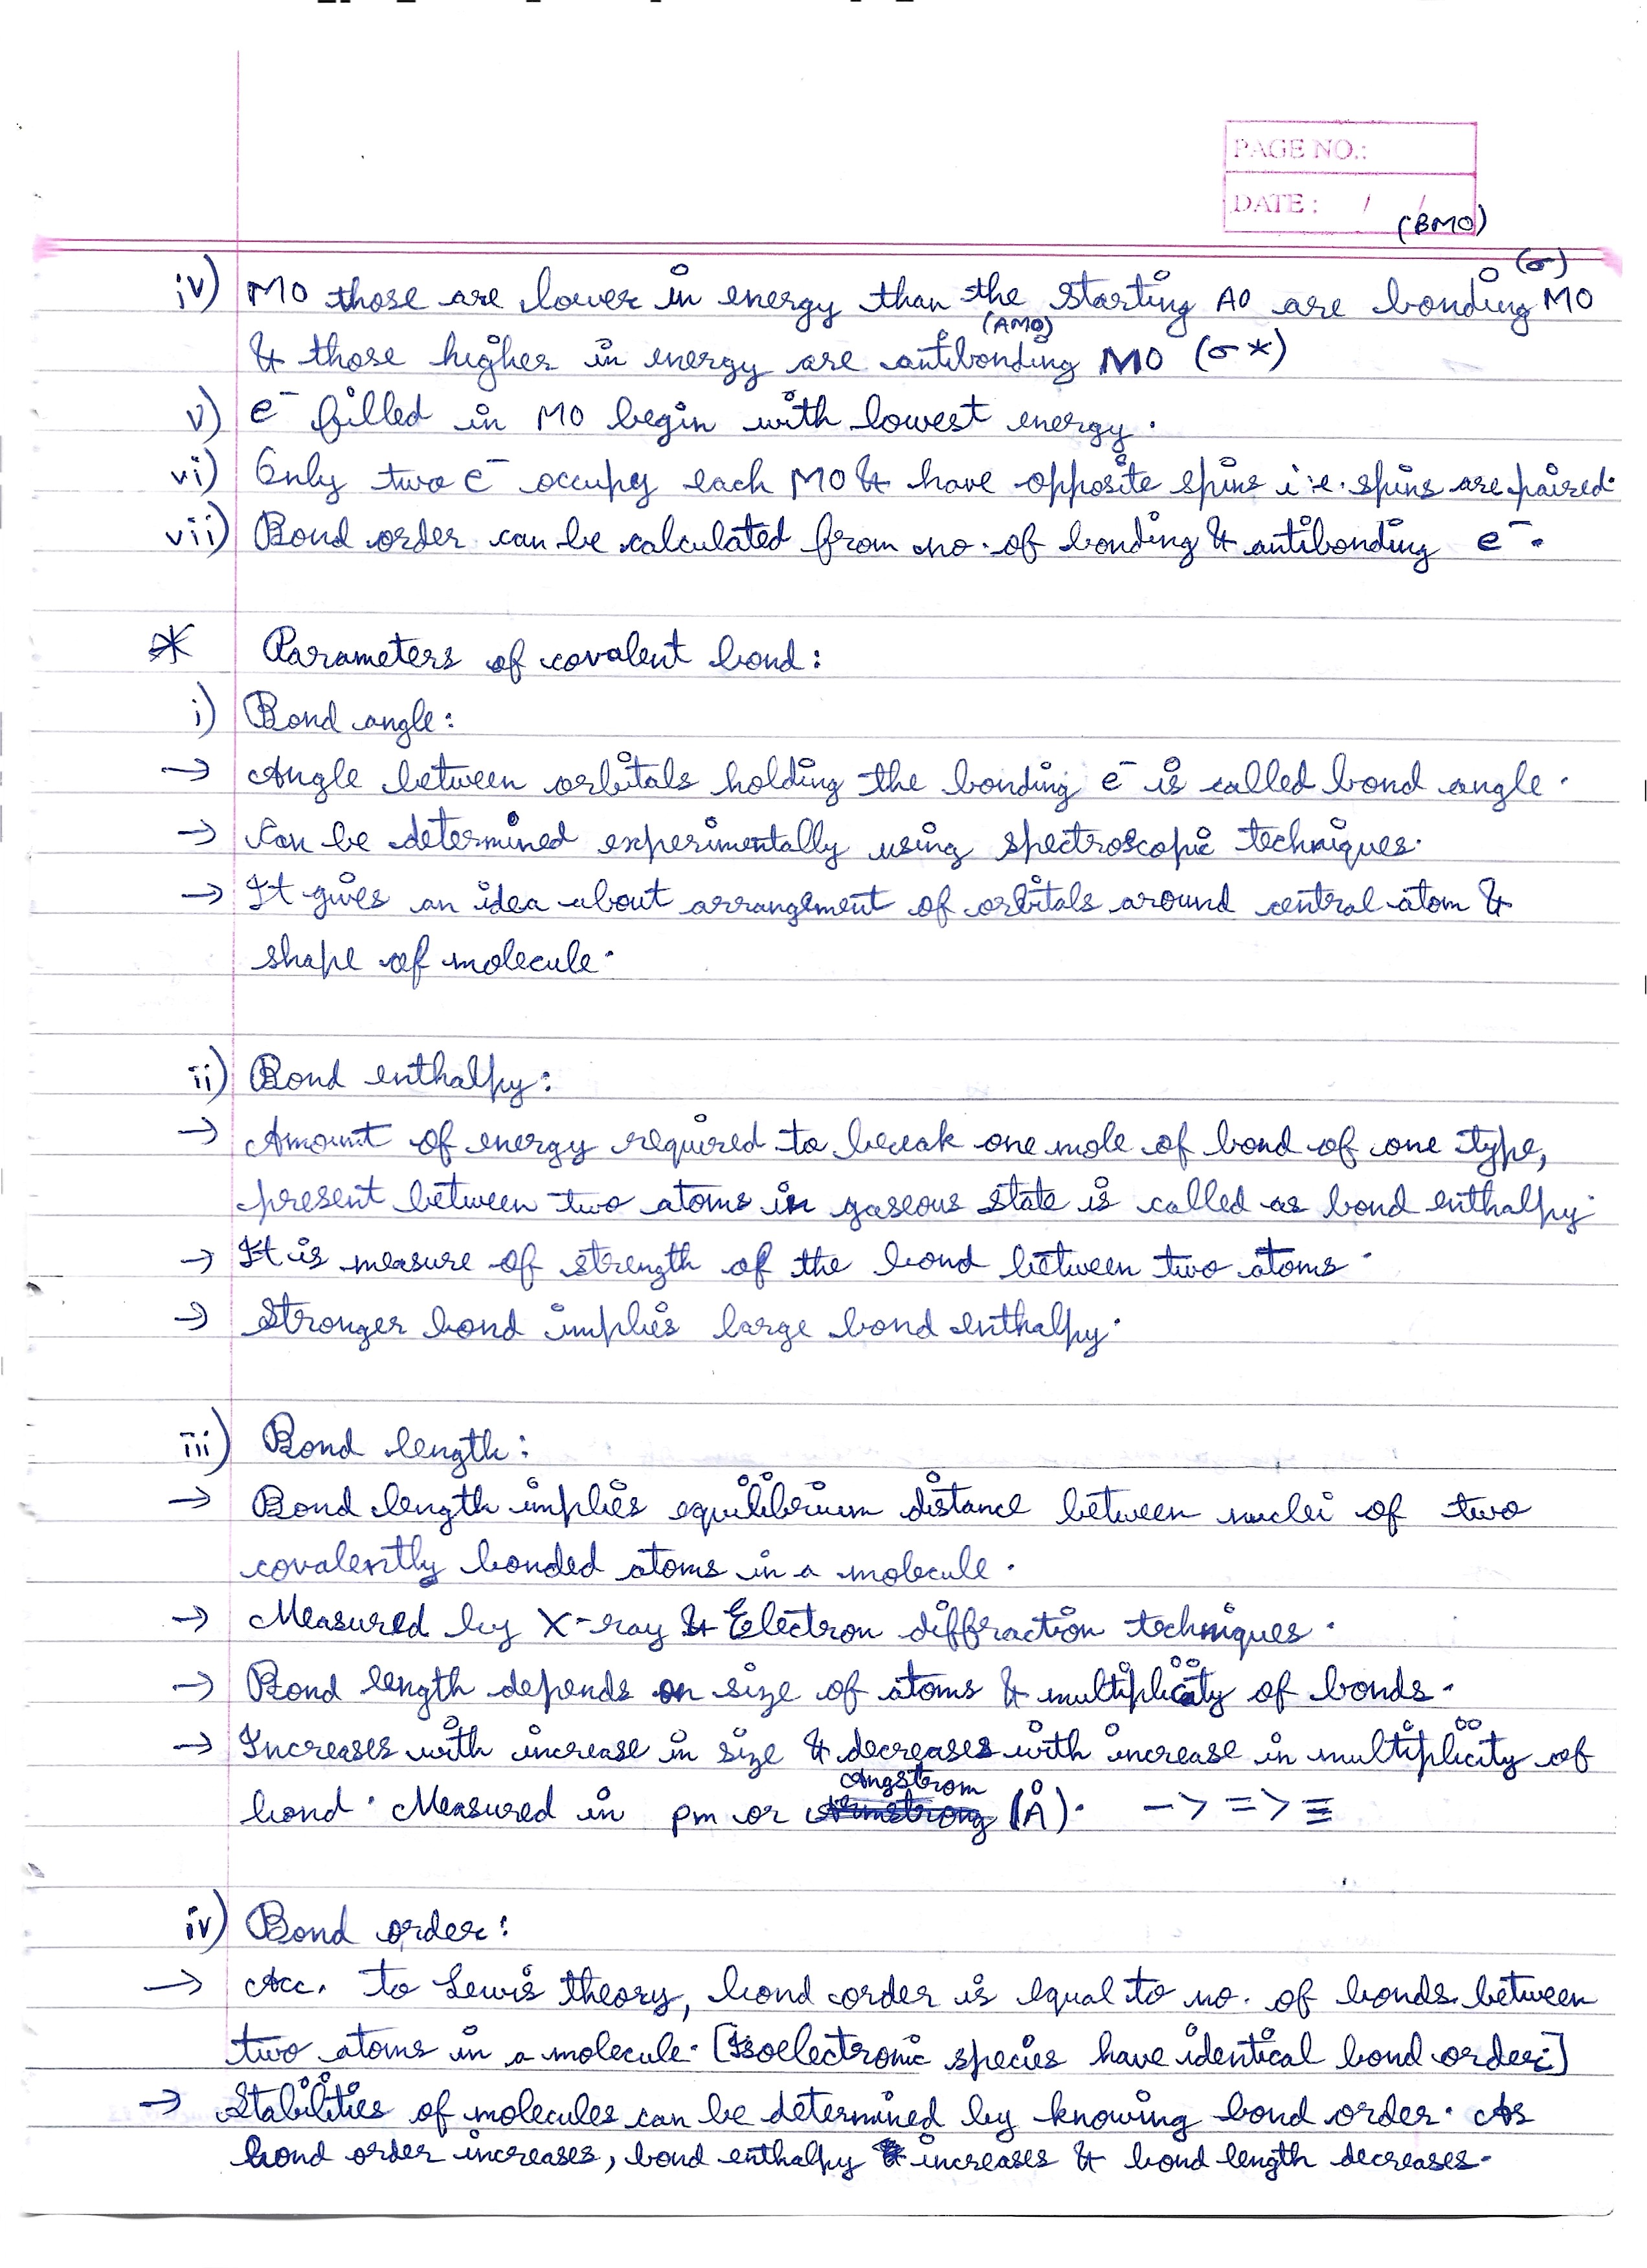 PAGE NO.:
DATE : / /
(BMO)
iv) MO those are lower in energy than the starting AO are bonding MO (σ)
(AMO)
& those higher in energy are antibonding MO (σ*)
v) e⁻ filled in MO begin with lowest energy.
vi) Only two e⁻ occupy each MO & have opposite spins i.e. spins are paired.
vii) Bond order can be calculated from no. of bonding & antibonding e⁻.
* Parameters of covalent bond:
i) Bond angle:
→ Angle between orbitals holding the bonding e⁻ is called bond angle.
→ Can be determined experimentally using spectroscopic techniques.
→ It gives an idea about arrangement of orbitals around central atom &
shape of molecule.
ii) Bond enthalpy:
→ Amount of energy required to break one mole of bond of one type,
present between two atoms in gaseous state is called as bond enthalpy.
→ It is measure of strength of the bond between two atoms.
→ Stronger bond implies large bond enthalpy.
iii) Bond length:
→ Bond length implies equilibrium distance between nuclei of two
covalently bonded atoms in a molecule.
→ Measured by X-ray & Electron diffraction techniques.
→ Bond length depends on size of atoms & multiplicity of bonds.
→ Increases with increase in size & decreases with increase in multiplicity of
Angstrom
bond. Measured in pm or Armstrong (Å). - > = > ≡
iv) Bond order:
→ Acc. to Lewis theory, bond order is equal to no. of bonds between
two atoms in a molecule. [Isoelectronic species have identical bond order.]
→ Stabilities of molecules can be determined by knowing bond order. As
bond order increases, bond enthalpy increases & bond length decreases.